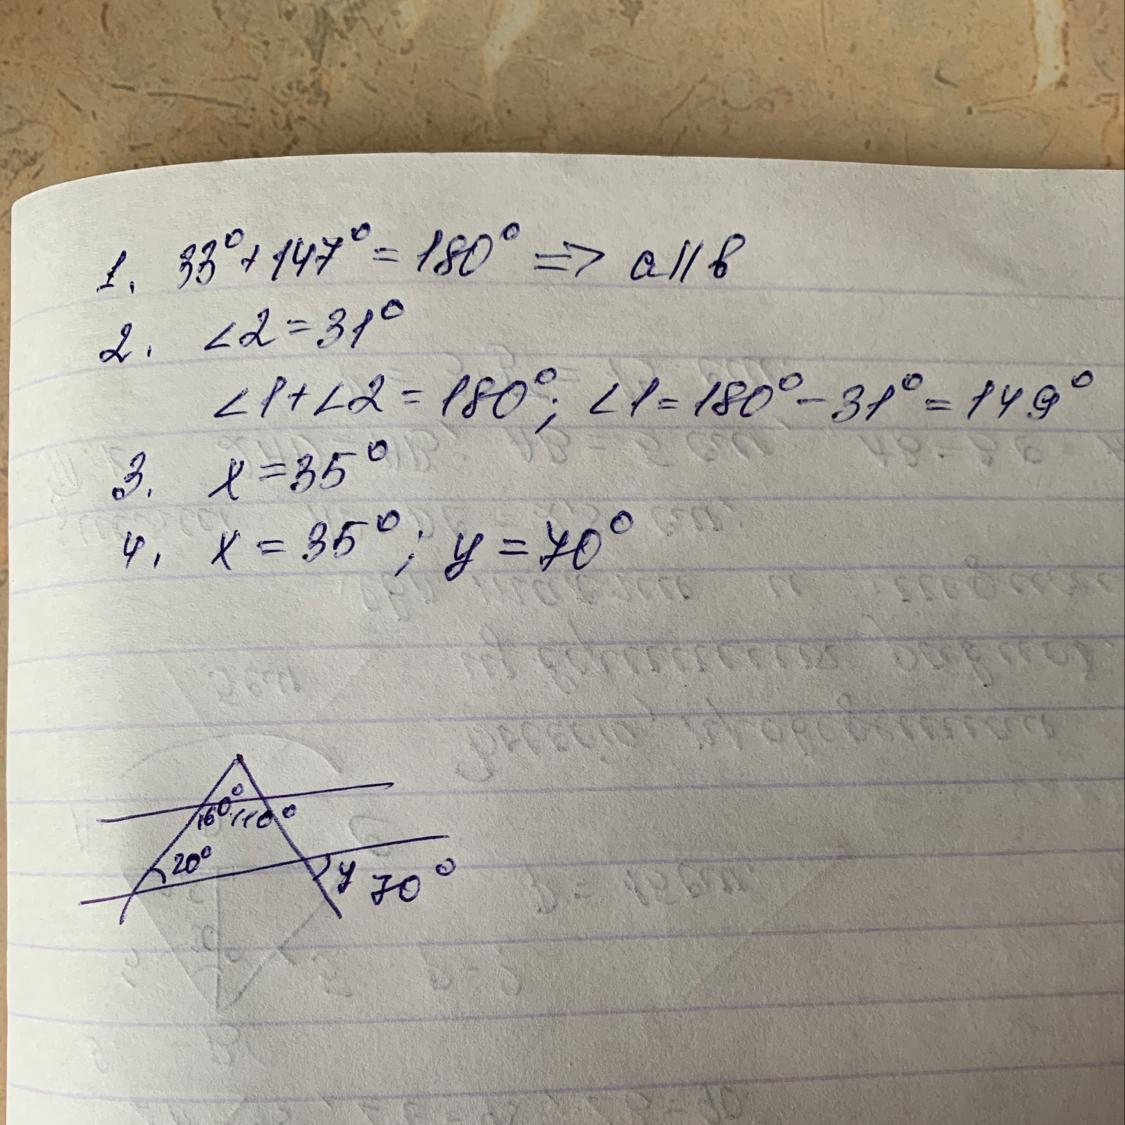 1. 33° + 147° = 180° => a || b
2. ∠2 = 31°
∠1 + ∠2 = 180°; ∠1 = 180° - 31° = 149°
3. x = 35°
4. x = 35°; y = 70°
160° 110°
20°
y 70°